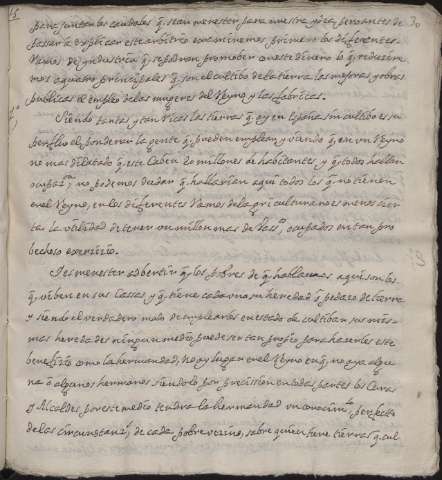 para juntar los caudales q. sean menester para nuestra ydea, pero antes de 30
passar a explicar este arbitrio examinemos primero los diferentes
Ramos de yndustria q. se podrian promober con este dinero lo q. reducire
mos a quatro prinzipales q. son el cultibo de la tierra, las mejoras y obras
publicas el empleo de las mugeres del Reyno y las fabricas.
Siendo tantas y tan ricas las tierras q. ay en España sin cultibo es su
perfluo el ponderar la gente q. pueden emplear, y viendo q. en un Reyno
no mas dilatado q. este caben 20 millones de habitantes, y q. todos hallan
ocupaz.n no podemos dudar q. hallarian aqui todos los q. no tienen
en el Reyno, en los diferentes Ramos de la agricultura no es menos cier
ta la utilidad de tener un millon mas de Vas.s ocupados en tan pro
bechoso exercicio.
Es menester adbertir q. los pobres de q. hablamos aqui son los
q. viben en sus Cassas y q. tiene cada uno su heredad o pedazo de tierra
y siendo el verdadero modo de emplearlos en estado de cultibar sus mis-
mas heredades ningun medio puede ser tan propio para hacerles este
beneficio como la hermandad, no ay lugar en el Reyno en q. no aya algu
no o algunos hermanos siendolo por precission en todas partes los Curas
y Alcaldes, por este medio tendra la hermandad un conocim.to perfecto
de las circunstanz.s de cada pobre vezino, sobre quien tiene tierras q. cul